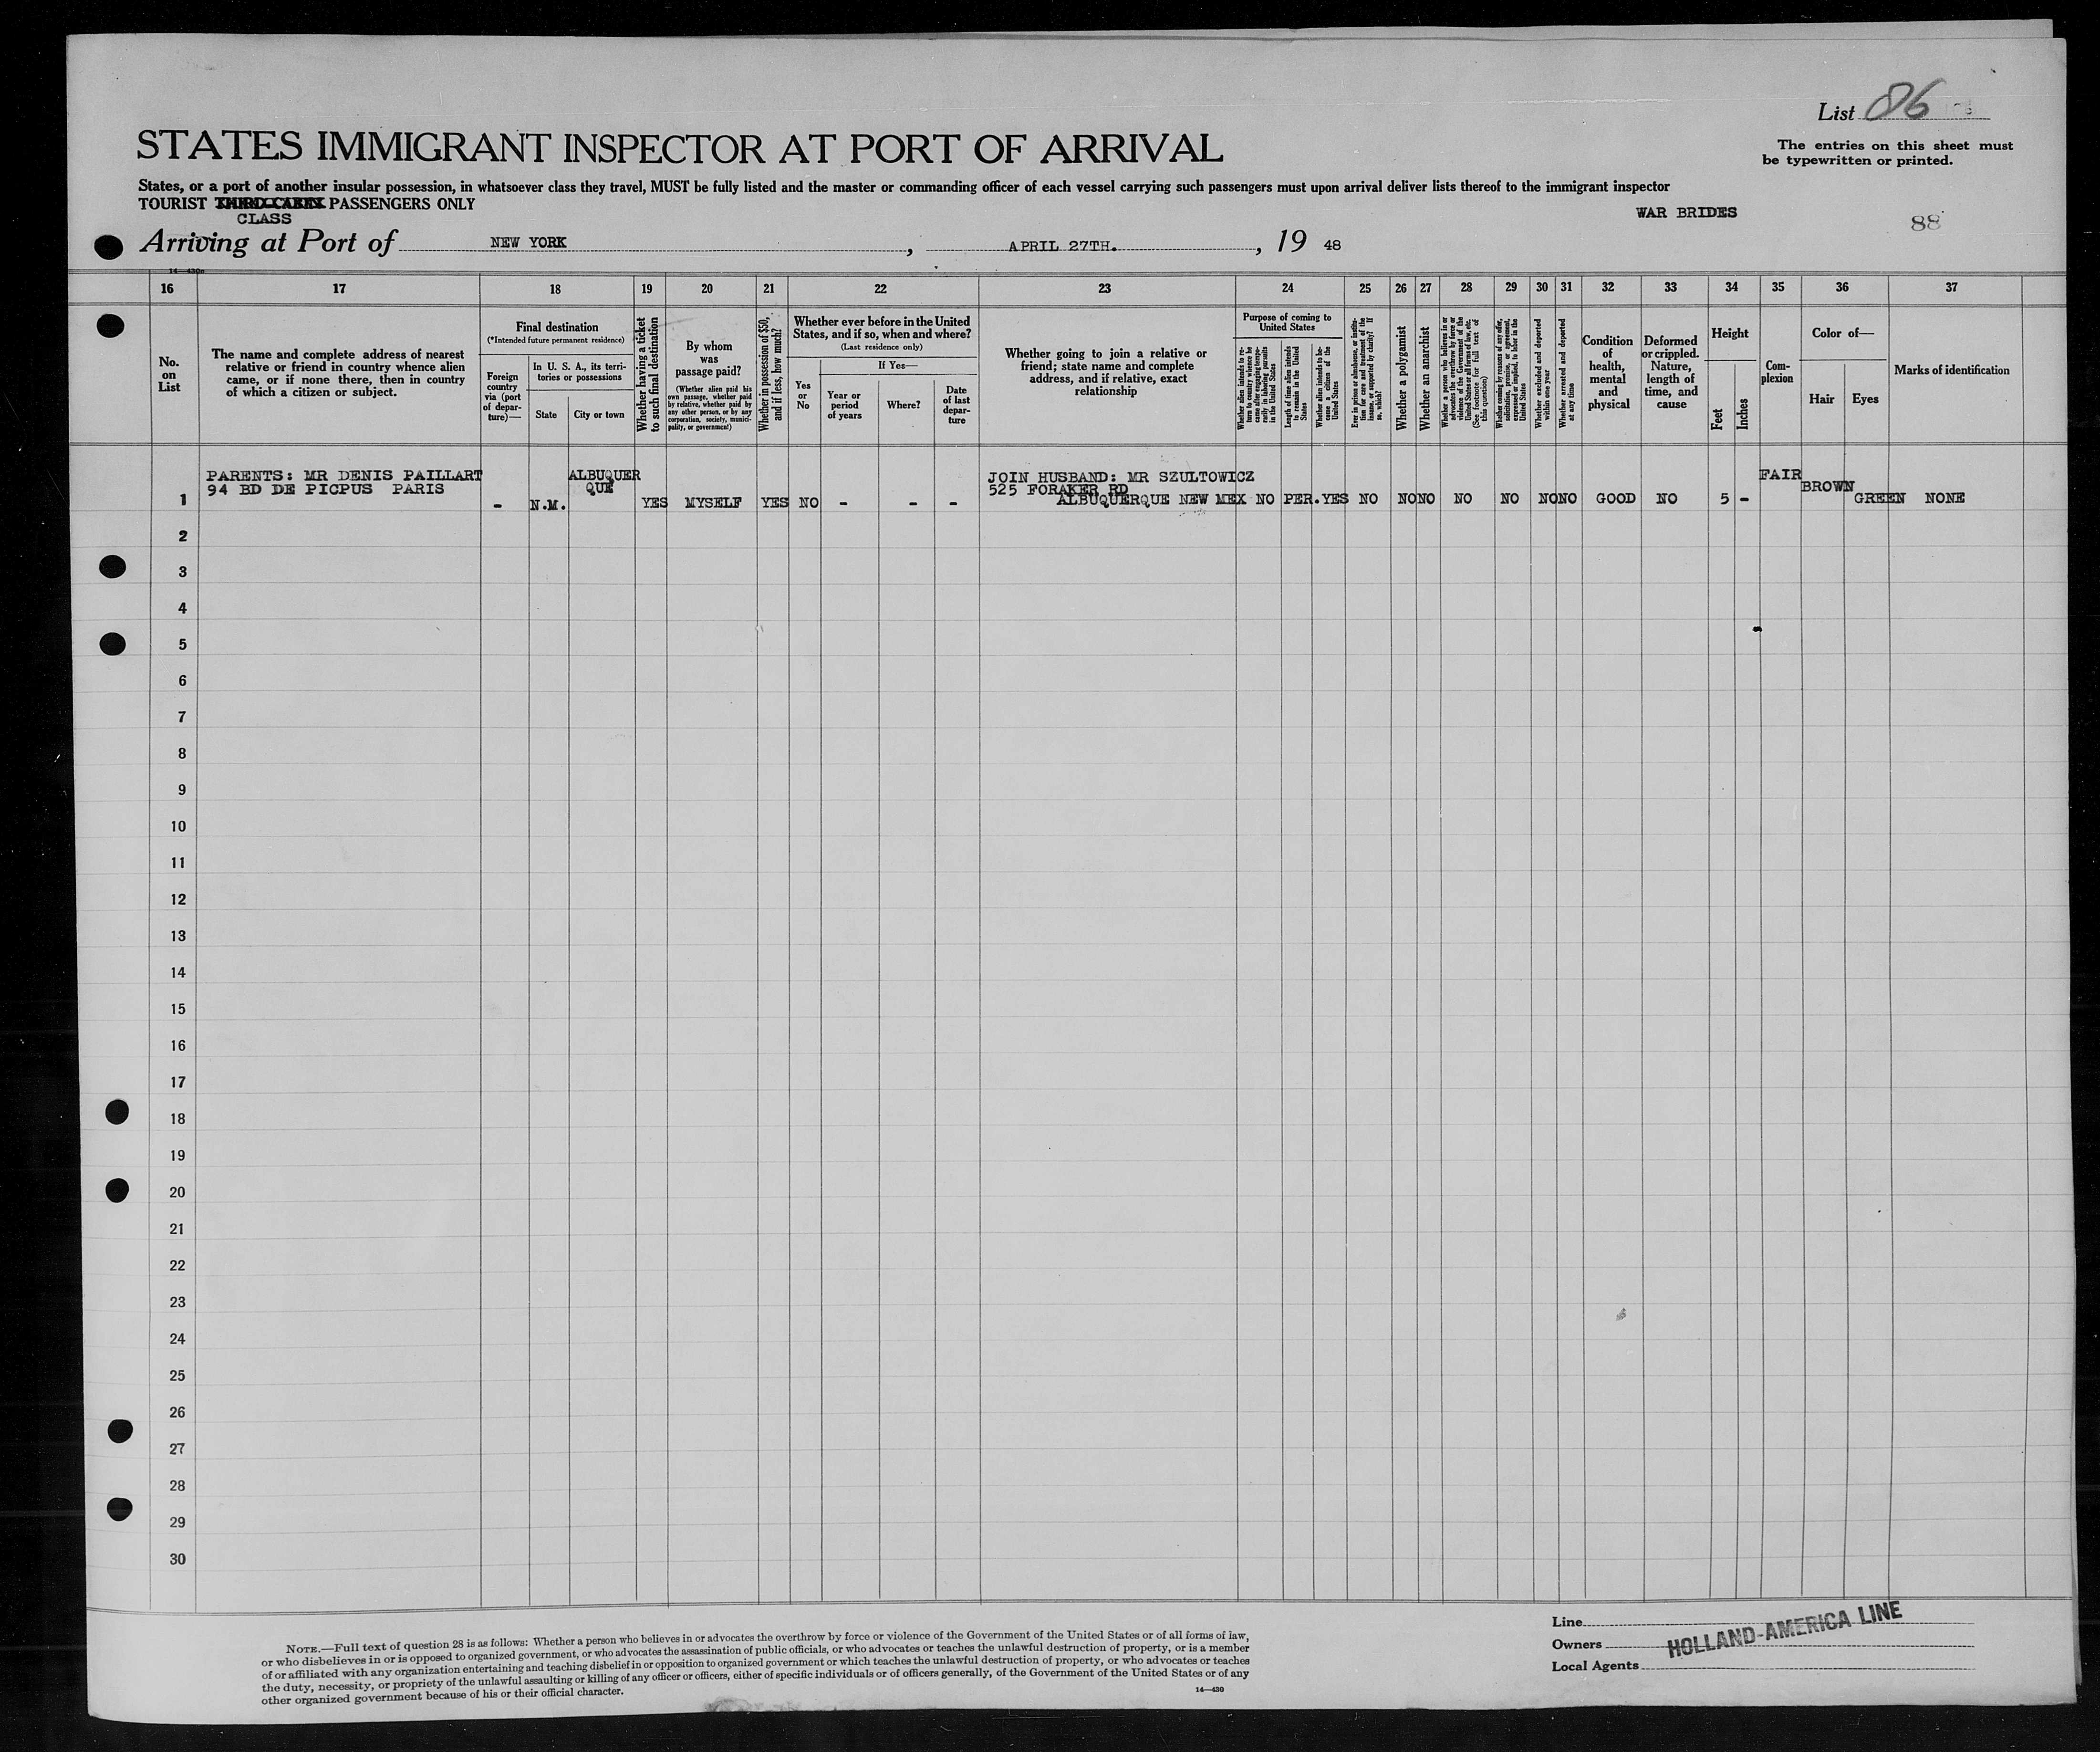 List 86
STATES IMMIGRANT INSPECTOR AT PORT OF ARRIVAL
The entries on this sheet must
be typewritten or printed.
States, or a port of another insular possession, in whatsoever class they travel, MUST be fully listed and the master or commanding officer of each vessel carrying such passengers must upon arrival deliver lists thereof to the immigrant inspector
TOURIST THIRD CABIN PASSENGERS ONLY
CLASS
WAR BRIDES
88
Arriving at Port of NEW YORK, APRIL 27TH., 19 48
14—430
16 17 18 19 20 21 22 23 24 25 26 27 28 29 30 31 32 33 34 35 36 37
No. on List
The name and complete address of nearest
relative or friend in country whence alien
came, or if none there, then in country
of which a citizen or subject.
Final destination
(*Intended future permanent residence)
Foreign country via (port of departure)—
In U. S. A., its territories or possessions
State
City or town
Whether having a ticket to such final destination
By whom was passage paid?
(Whether alien paid his own passage, whether paid by relative, whether paid by any other person, or by any corporation, society, municipality, or government)
Whether in possession of $50, and if less, how much?
Whether ever before in the United States, and if so, when and where?
(Last residence only)
Yes or No
If Yes—
Year or period of years
Where?
Date of last departure
Whether going to join a relative or
friend; state name and complete
address, and if relative, exact
relationship
Purpose of coming to United States
Whether alien intends to return to country whence he came after engaging temporarily in laboring pursuits in the United States
Length of time alien intends to remain in the United States
Whether alien intends to become a citizen of the United States
Ever in prison or almshouse, or institution for care and treatment of the insane, or supported by charity? If so, which?
Whether a polygamist
Whether an anarchist
Whether a person who believes in or advocates the overthrow by force or violence of the Government of the United States or all forms of law, etc. (See footnote for full text of this question)
Whether coming by reason of any offer, solicitation, promise, or agreement, expressed or implied, to labor in the United States
Whether excluded and deported within one year
Whether arrested and deported at any time
Condition of health, mental and physical
Deformed or crippled. Nature, length of time, and cause
Height
Feet
Inches
Complexion
Color of—
Hair
Eyes
Marks of identification
PARENTS: MR DENIS PAILLART
94 BD DE PICPUS PARIS
ALBUQUER
QUE
JOIN HUSBAND: MR SZULTOWICZ
525 FORAKER RD
FAIR
BROWN
1 - N.M. YES MYSELF YES NO - - - ALBUQUERQUE NEW MEX NO PER. YES NO NO NO NO NO NO NO GOOD NO 5 - GREEN NONE
2
3
4
5
6
7
8
9
10
11
12
13
14
15
16
17
18
19
20
21
22
23
24
25
26
27
28
29
30
NOTE.—Full text of question 28 is as follows: Whether a person who believes in or advocates the overthrow by force or violence of the Government of the United States or of all forms of law,
or who disbelieves in or is opposed to organized government, or who advocates the assassination of public officials, or who advocates or teaches the unlawful destruction of property, or is a member
of or affiliated with any organization entertaining and teaching disbelief in or opposition to organized government or which teaches the unlawful destruction of property, or who advocates or teaches
the duty, necessity, or propriety of the unlawful assaulting or killing of any officer or officers, either of specific individuals or of officers generally, of the Government of the United States or of any
other organized government because of his or their official character.
14—430
Line
Owners
Local Agents
HOLLAND-AMERICA LINE